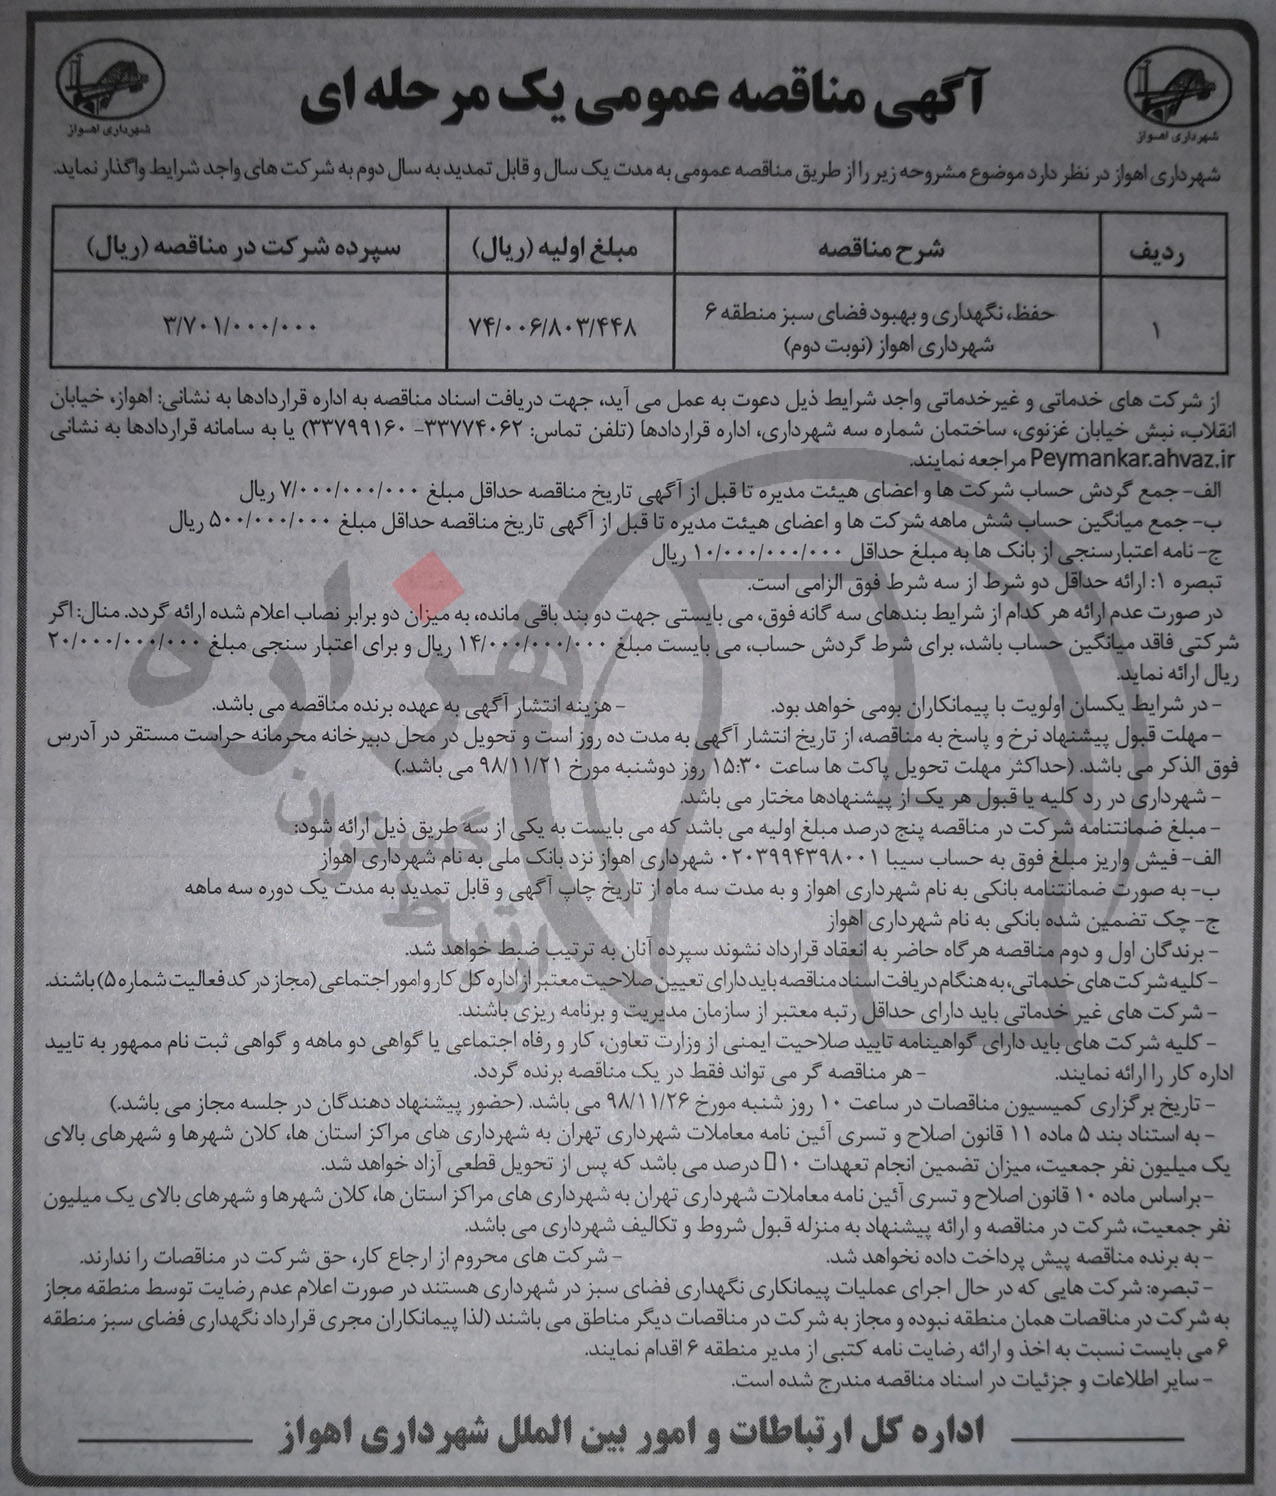 آگهی مناقصه عمومی یک مرحله ای
شهرداری اهواز
شهرداری اهواز
شهرداری اهواز در نظر دارد موضوع مشروحه زیر را از طریق مناقصه عمومی به مدت یک سال و قابل تمدید به سال دوم به شرکت های واجد شرایط واگذار نماید.
ردیف شرح مناقصه مبلغ اولیه (ریال) سپرده شرکت در مناقصه (ریال)
۱ حفظ، نگهداری و بهبود فضای سبز منطقه ۶ ۷۴/۰۰۶/۸۰۳/۴۴۸ ۳/۷۰۱/۰۰۰/۰۰۰
شهرداری اهواز (نوبت دوم)
از شرکت های خدماتی و غیرخدماتی واجد شرایط ذیل دعوت به عمل می آید، جهت دریافت اسناد مناقصه به اداره قراردادها به نشانی: اهواز، خیابان
انقلاب، نبش خیابان غزنوی، ساختمان شماره سه شهرداری، اداره قراردادها (تلفن تماس: ۳۳۷۷۴۰۶۲- ۳۳۷۹۹۱۶۰) یا به سامانه قراردادها به نشانی
Peymankar.ahvaz.ir مراجعه نمایند.
الف- جمع گردش حساب شرکت ها و اعضای هیئت مدیره تا قبل از آگهی تاریخ مناقصه حداقل مبلغ ۷/۰۰۰/۰۰۰/۰۰۰ ریال
ب- جمع میانگین حساب شش ماهه شرکت ها و اعضای هیئت مدیره تا قبل از آگهی تاریخ مناقصه حداقل مبلغ ۵۰۰/۰۰۰/۰۰۰ ریال
ج- نامه اعتبارسنجی از بانک ها به مبلغ حداقل ۱۰/۰۰۰/۰۰۰/۰۰۰ ریال
تبصره ۱: ارائه حداقل دو شرط از سه شرط فوق الزامی است.
در صورت عدم ارائه هر کدام از شرایط بندهای سه گانه فوق، می بایستی جهت دو بند باقی مانده، به میزان دو برابر نصاب اعلام شده ارائه گردد. مثال: اگر
شرکتی فاقد میانگین حساب باشد، برای شرط گردش حساب، می بایست مبلغ ۱۴/۰۰۰/۰۰۰/۰۰۰ ریال و برای اعتبار سنجی مبلغ ۲۰/۰۰۰/۰۰۰/۰۰۰
ریال ارائه نماید.
- در شرایط یکسان اولویت با پیمانکاران بومی خواهد بود. - هزینه انتشار آگهی به عهده برنده مناقصه می باشد.
- مهلت قبول پیشنهاد نرخ و پاسخ به مناقصه، از تاریخ انتشار آگهی به مدت ده روز است و تحویل در محل دبیرخانه محرمانه حراست مستقر در آدرس
فوق الذکر می باشد. (حداکثر مهلت تحویل پاکت ها ساعت ۱۵:۳۰ روز دوشنبه مورخ ۹۸/۱۱/۲۱ می باشد.)
- شهرداری در رد کلیه یا قبول هر یک از پیشنهادها مختار می باشد.
- مبلغ ضمانتنامه شرکت در مناقصه پنج درصد مبلغ اولیه می باشد که می بایست به یکی از سه طریق ذیل ارائه شود:
الف- فیش واریز مبلغ فوق به حساب سیبا ۰۲۰۳۹۹۴۳۹۸۰۰۱ شهرداری اهواز نزد بانک ملی به نام شهرداری اهواز
ب- به صورت ضمانتنامه بانکی به نام شهرداری اهواز و به مدت سه ماه از تاریخ چاپ آگهی و قابل تمدید به مدت یک دوره سه ماهه
ج- چک تضمین شده بانکی به نام شهرداری اهواز
- برندگان اول و دوم مناقصه هرگاه حاضر به انعقاد قرارداد نشوند سپرده آنان به ترتیب ضبط خواهد شد.
- کلیه شرکت های خدماتی، به هنگام دریافت اسناد مناقصه باید دارای تعیین صلاحیت معتبر از اداره کل کار و امور اجتماعی (مجاز در کد فعالیت شماره ۵) باشند.
- شرکت های غیر خدماتی باید دارای حداقل رتبه معتبر از سازمان مدیریت و برنامه ریزی باشند.
- کلیه شرکت های باید دارای گواهینامه تایید صلاحیت ایمنی از وزارت تعاون، کار و رفاه اجتماعی یا گواهی دو ماهه و گواهی ثبت نام ممهور به تایید
اداره کار را ارائه نمایند. - هر مناقصه گر می تواند فقط در یک مناقصه برنده گردد.
- تاریخ برگزاری کمیسیون مناقصات در ساعت ۱۰ روز شنبه مورخ ۹۸/۱۱/۲۶ می باشد. (حضور پیشنهاد دهندگان در جلسه مجاز می باشد.)
- به استناد بند ۵ ماده ۱۱ قانون اصلاح و تسری آئین نامه معاملات شهرداری تهران به شهرداری های مراکز استان ها، کلان شهرها و شهرهای بالای
یک میلیون نفر جمعیت، میزان تضمین انجام تعهدات ۱۰ درصد می باشد که پس از تحویل قطعی آزاد خواهد شد.
-براساس ماده ۱۰ قانون اصلاح و تسری آئین نامه معاملات شهرداری تهران به شهرداری های مراکز استان ها، کلان شهرها و شهرهای بالای یک میلیون
نفر جمعیت، شرکت در مناقصه و ارائه پیشنهاد به منزله قبول شروط و تکالیف شهرداری می باشد.
- به برنده مناقصه پیش پرداخت داده نخواهد شد. - شرکت های محروم از ارجاع کار، حق شرکت در مناقصات را ندارند.
- تبصره: شرکت هایی که در حال اجرای عملیات پیمانکاری نگهداری فضای سبز در شهرداری هستند در صورت اعلام عدم رضایت توسط منطقه مجاز
به شرکت در مناقصات همان منطقه نبوده و مجاز به شرکت در مناقصات دیگر مناطق می باشند (لذا پیمانکاران مجری قرارداد نگهداری فضای سبز منطقه
۶ می بایست نسبت به اخذ و ارائه رضایت نامه کتبی از مدیر منطقه ۶ اقدام نمایند.
- سایر اطلاعات و جزئیات در اسناد مناقصه مندرج شده است.
اداره کل ارتباطات و امور بین الملل شهرداری اهواز
هزاره
گستران
ارتباط